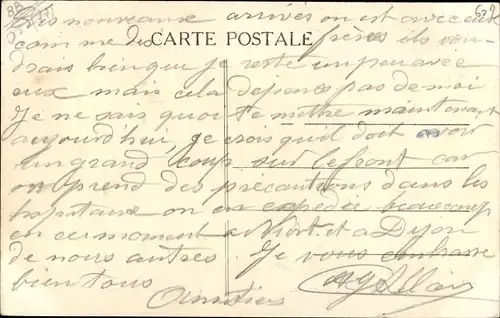 des nouveaux arrivés on est avec eux
comme des frères ils vou-
CARTE POSTALE
drais bien que je reste un peu avec
eux mais cela dépend pas de moi
Je ne sais quoi te mettre maintenant
aujourd'hui, je crois qu'il doit y avoir
un grand coup sur le front car
on prend des précautions dans les
hopitaux on en expédie beaucoup
en ce moment a Niort et a Dijon
de nous autres. Je vous embrasse
bien tous
Amitiés